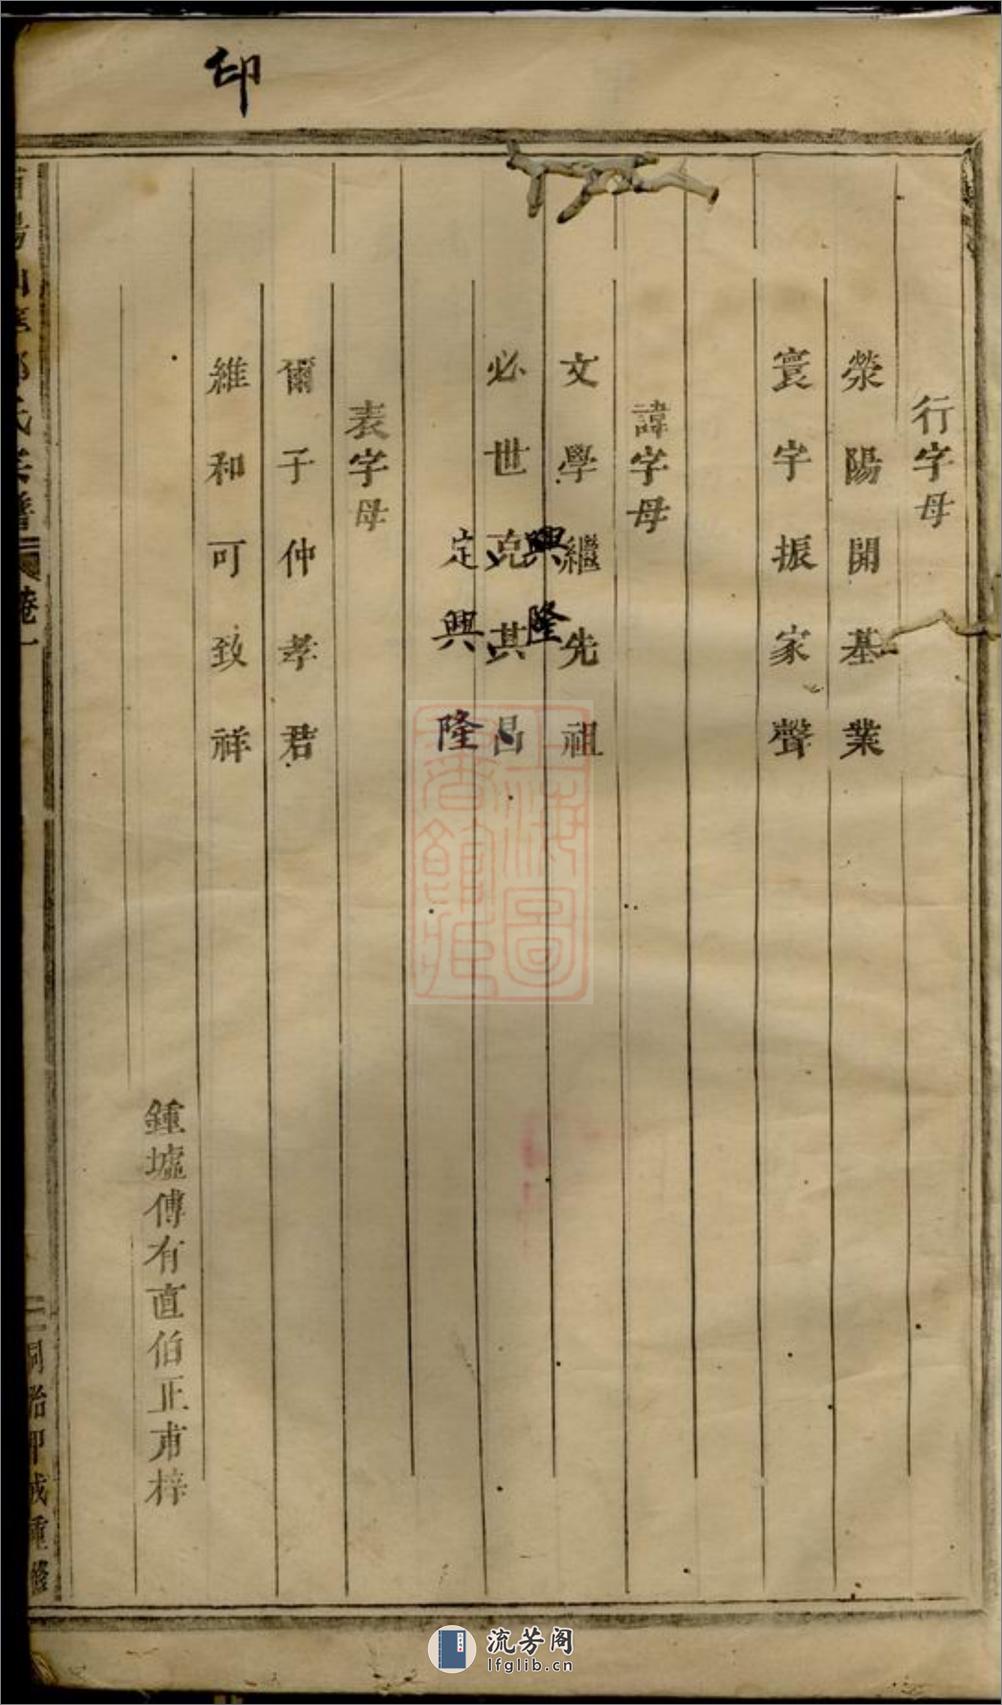 印
行字母
滎陽開基業
寰宇振家聲
諱字母
文學繼先祖
興隆
必世克其昌
定興隆
表字母
爾子仲孝君
維和可致祥
鍾墟傅有直伯正甫梓
氏宗譜
卷一
二
同治甲戌重修
上海圖書館藏
流芳阁
lfglib.cn